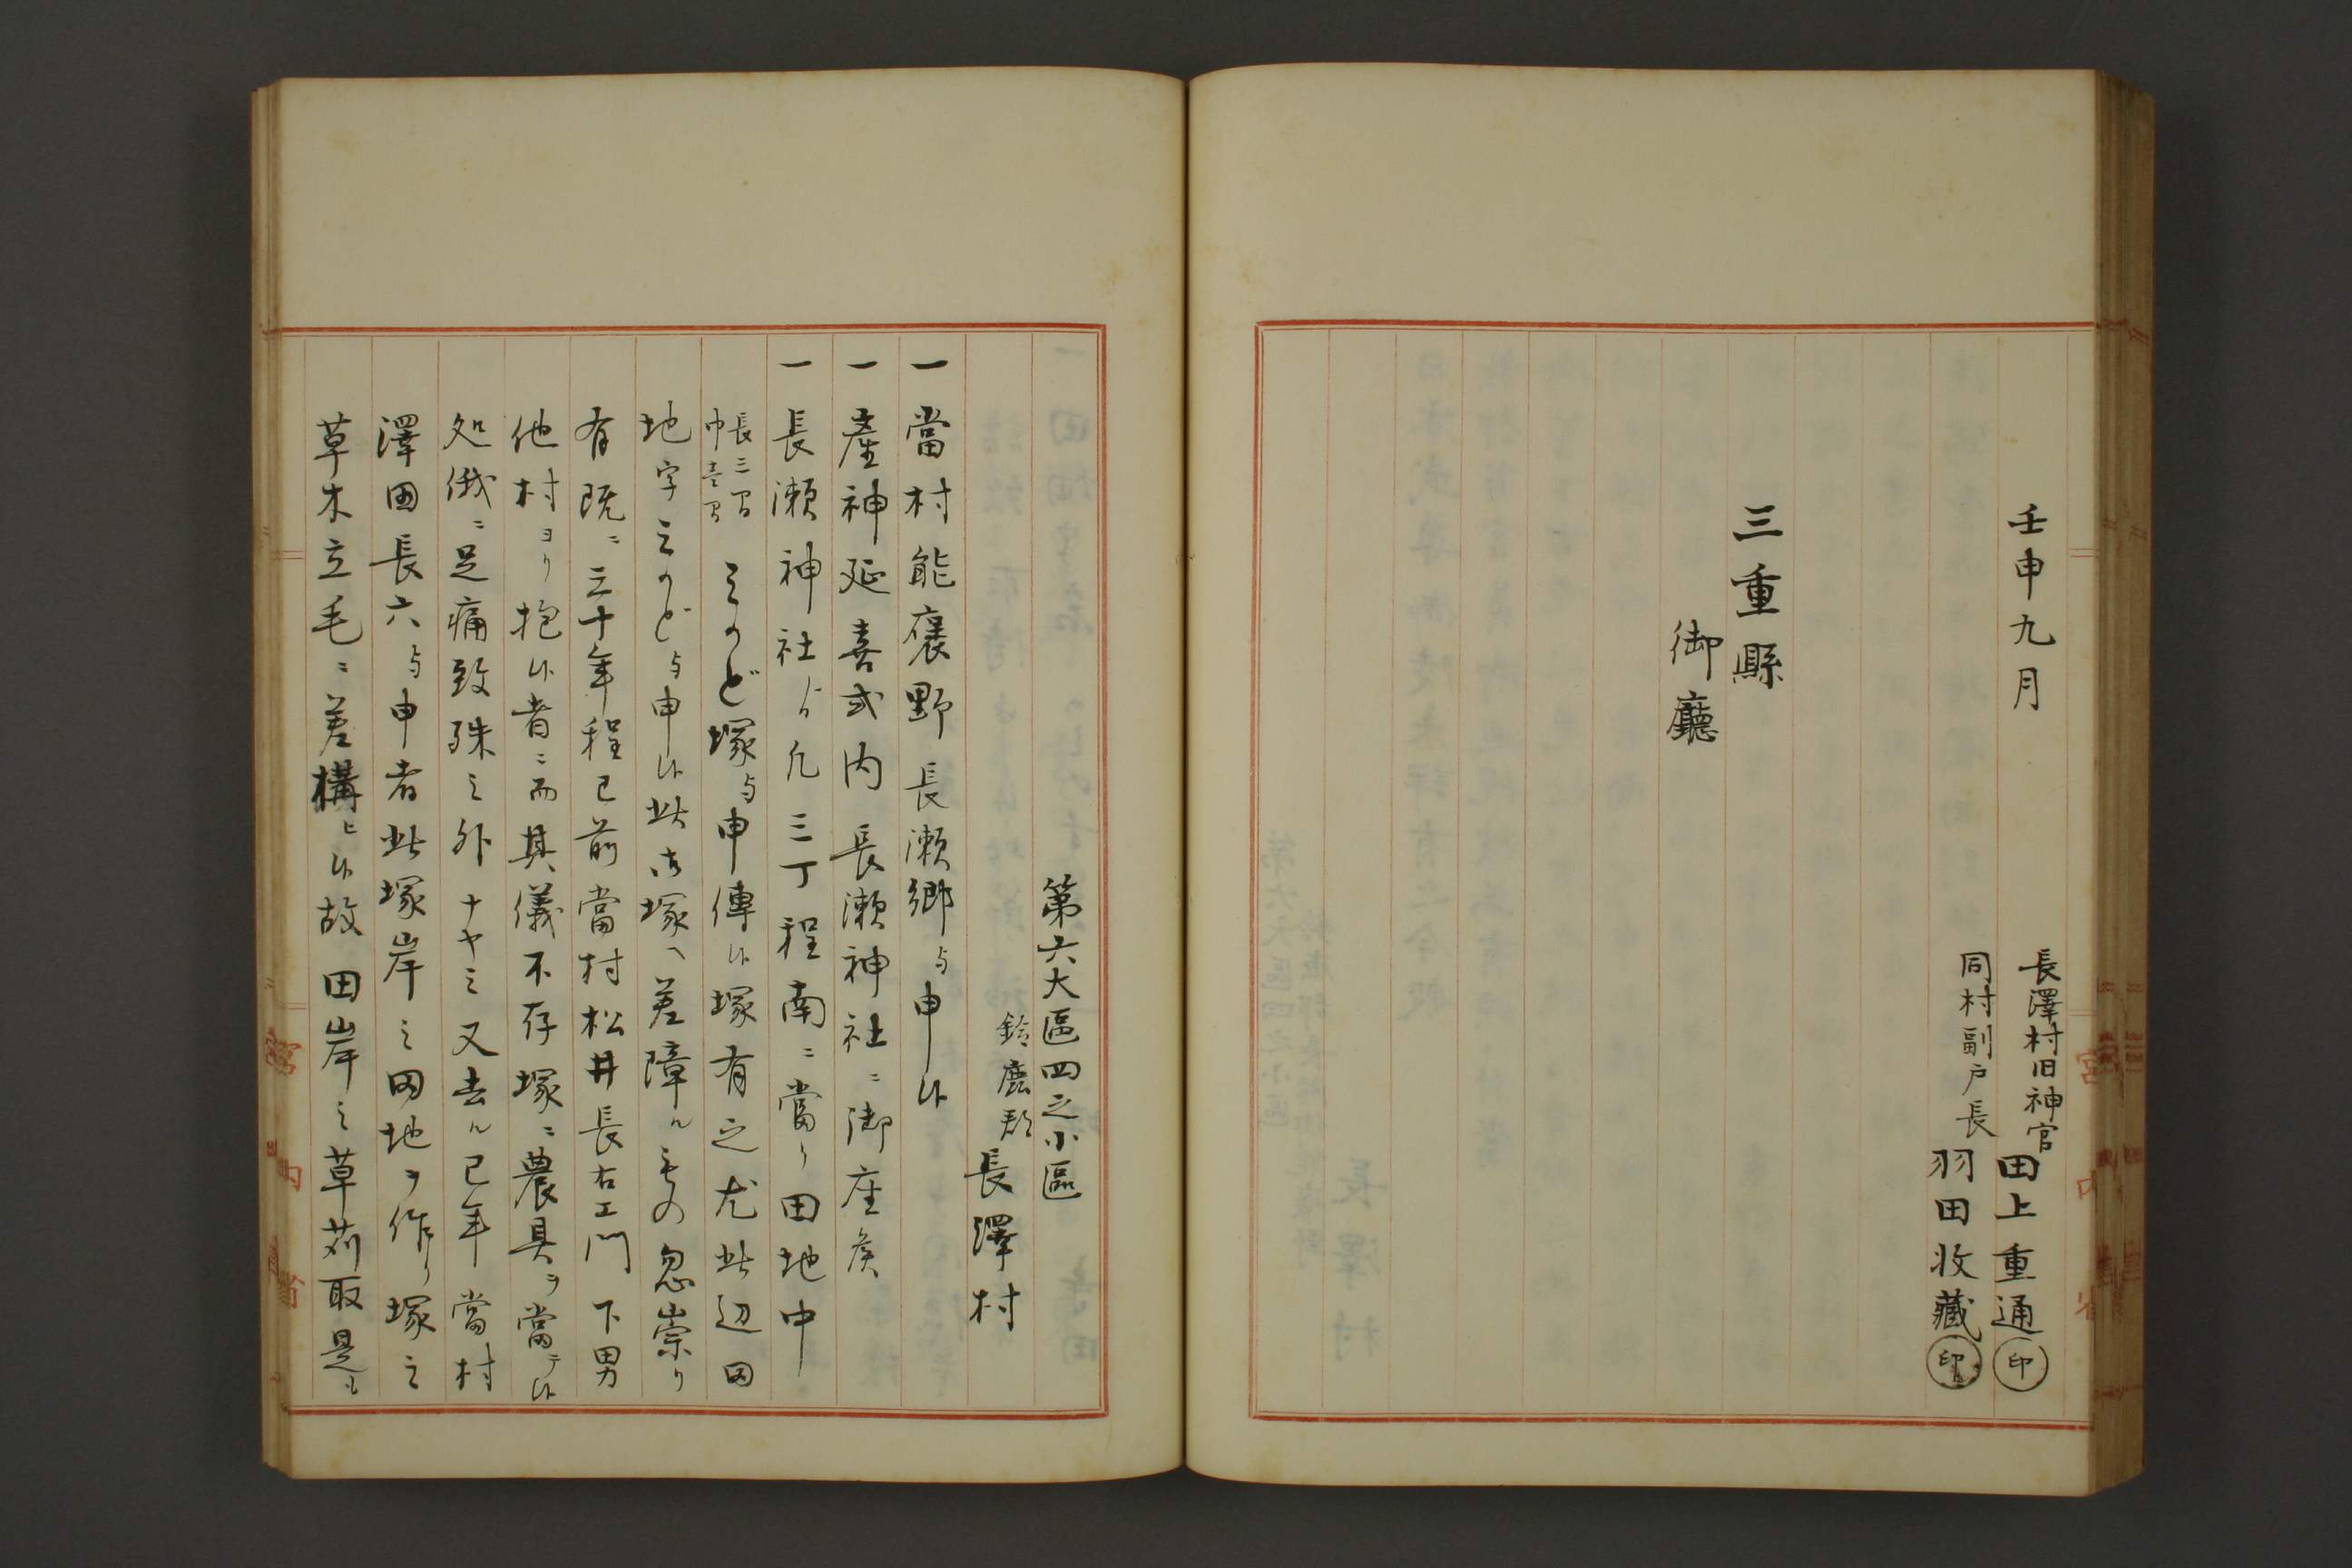 壬申九月
長澤村旧神官
田上重通㊞
同村副戸長
羽田收藏㊞
三重縣
御廳
第六大區四之小區
鈴鹿郡
長澤村
一當村能褒野長瀬郷与申候
一產神延喜式内長瀬神社ニ御座候
一長瀬神社ゟ凡三丁程南ニ當リ田地中
長三間
巾壱間
ミかど塚与申傳候塚有之尤此辺田
地字ミかど与申候此御塚ヘ差障ルもの忽崇リ
有既ニ三十年程已前當村松井長右エ門下男
他村ヨリ抱候者ニ而其儀不存塚ニ農具ヲ當テ候
処俄ニ足痛致殊之外ナヤミ又去ル巳年當村
澤田長六与申者此塚岸之田地ヲ作リ塚之
草木立毛ニ差構ヒ候故田岸之草苅取是も
宮内省
宮内省